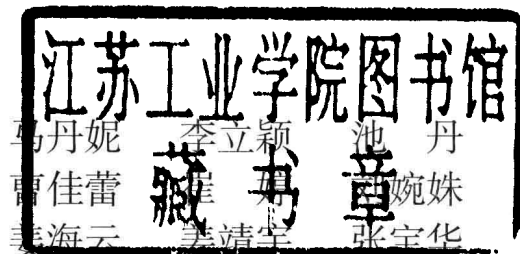 江苏工业学院图书馆
藏书章
马丹妮 李立颖 池丹
曹佳蕾 婉姝
姜海云 姜靖宇 张宝华